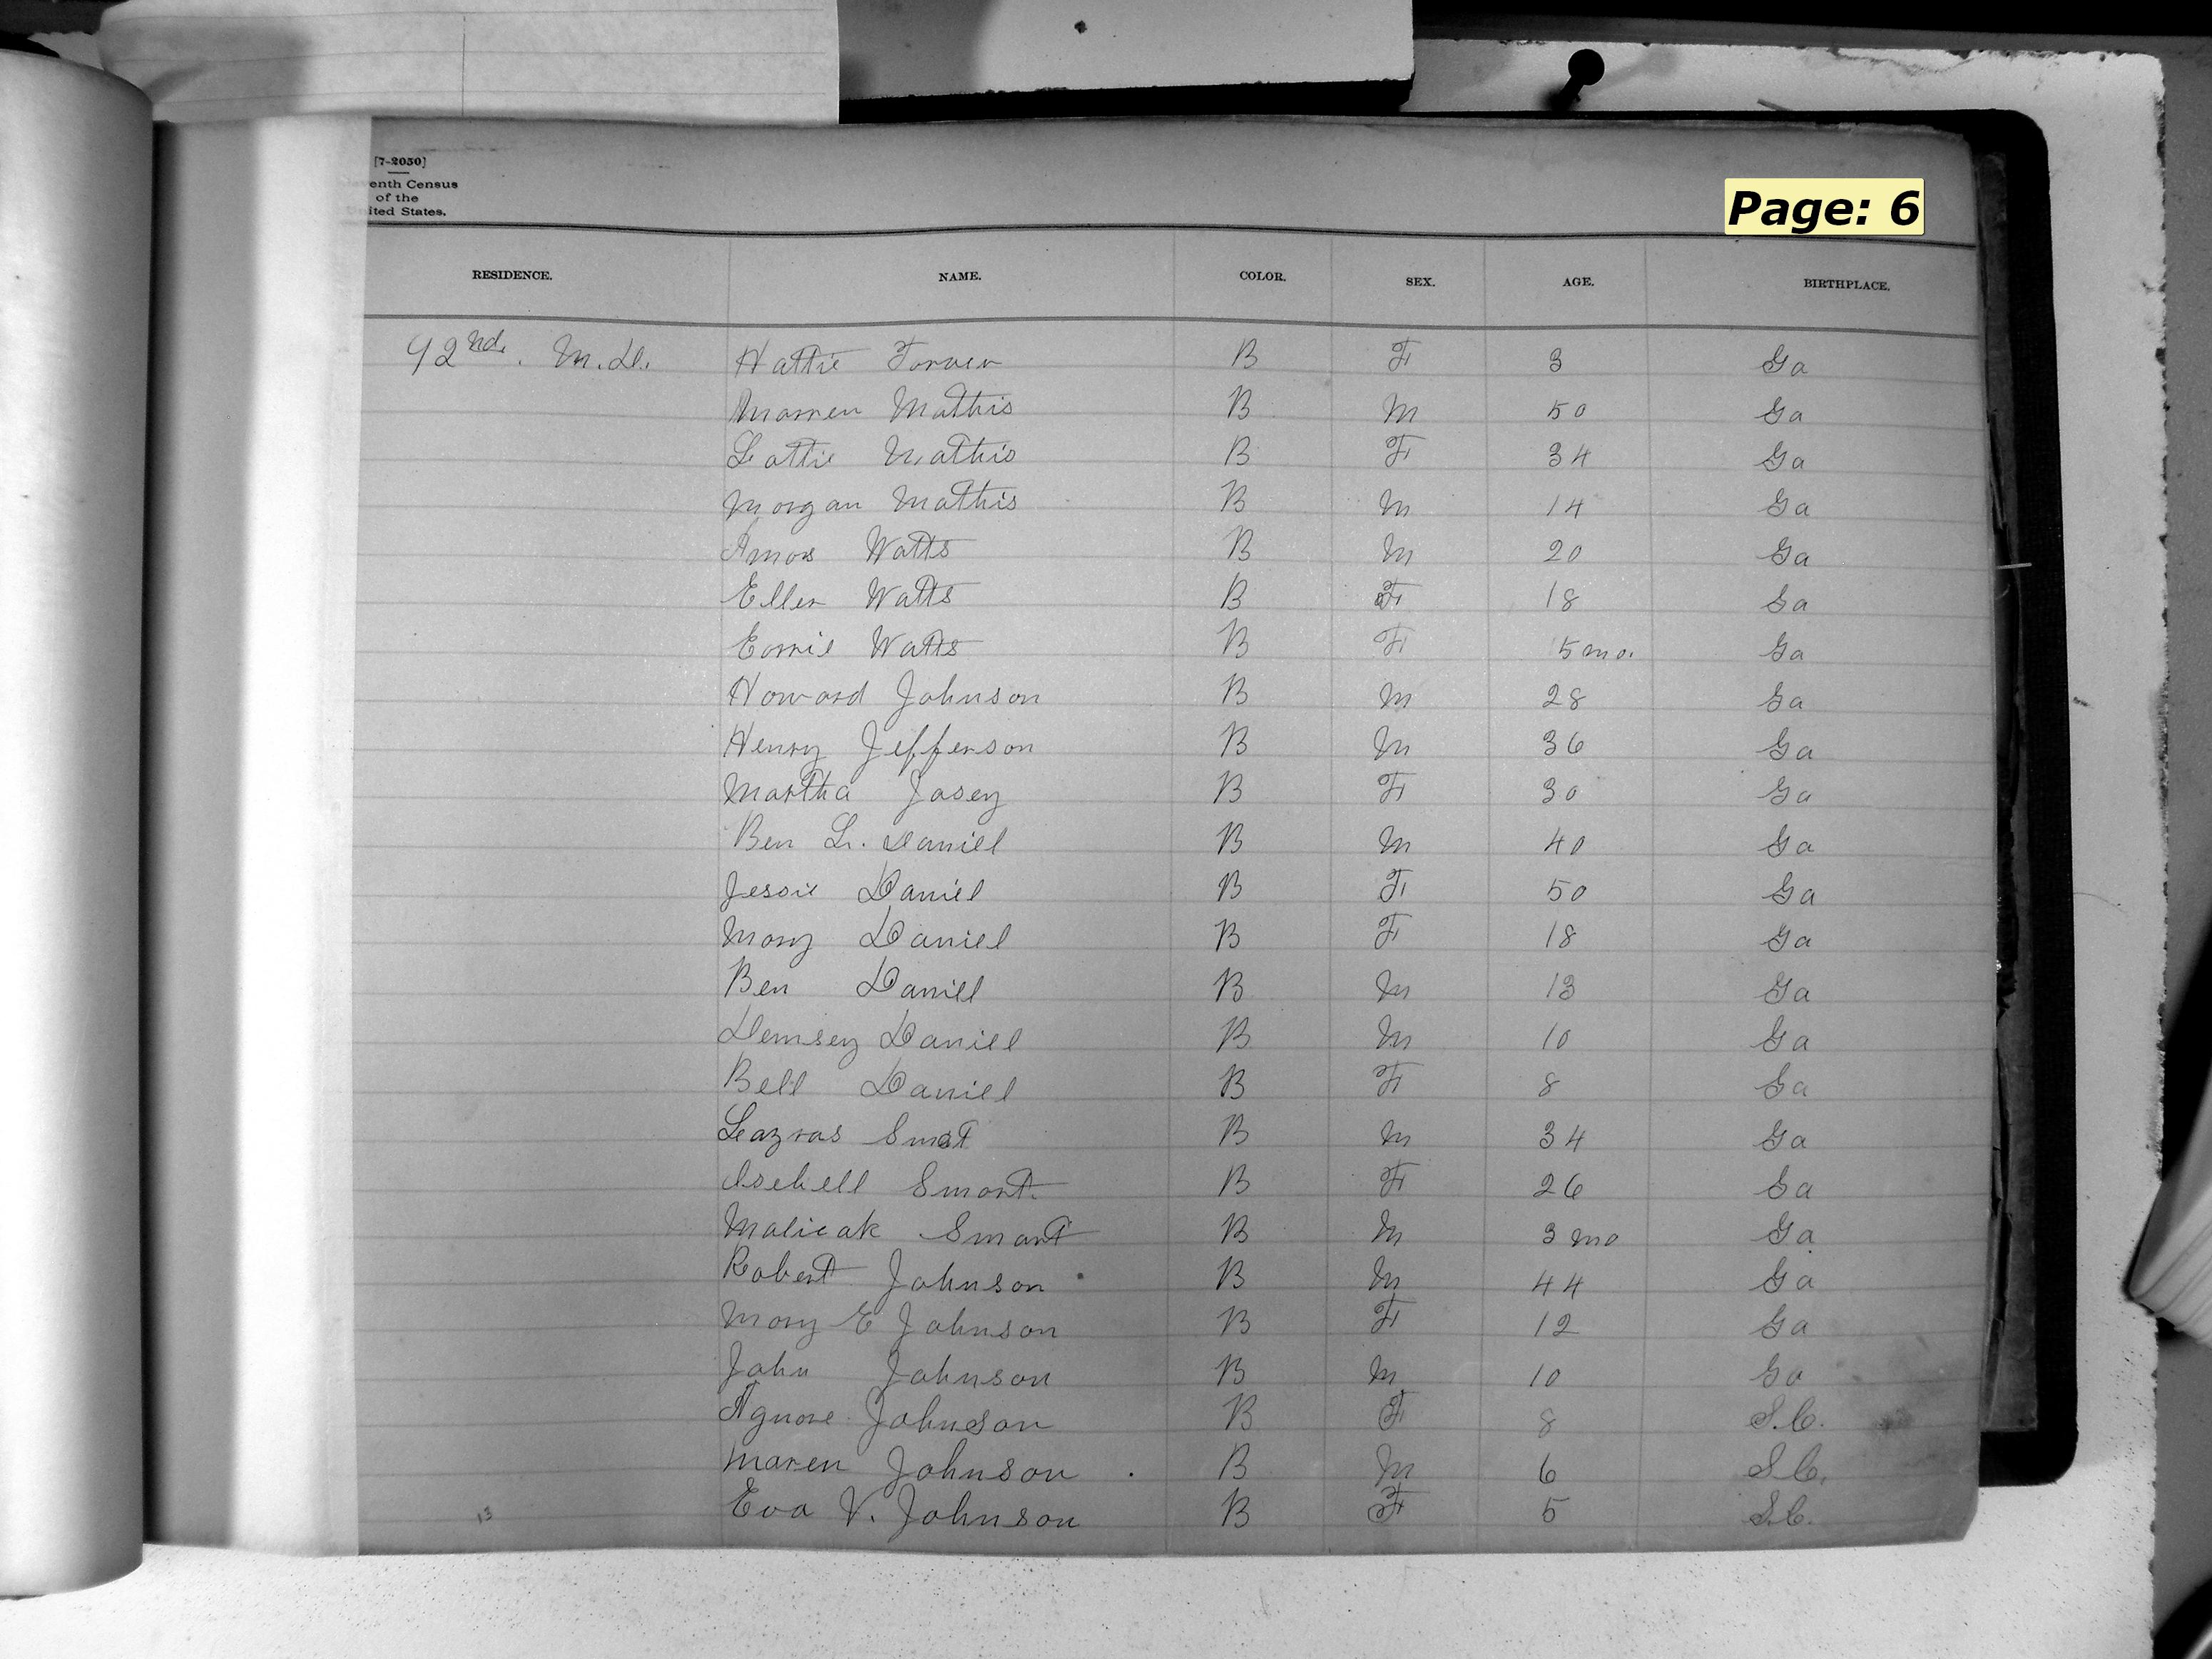 [7-2050]
enth Census
of the
ited States.
Page: 6
RESIDENCE. NAME. COLOR. SEX. AGE. BIRTHPLACE.
92nd. M.D. Hattie B F 3 Ga
Warren Mathis B M 50 Ga
Lottie Mathis B F 34 Ga
Morgan Mathis B M 14 Ga
Amos Watts B M 20 Ga
Ellen Watts B F 18 Ga
Watts B F 5 mo. Ga
Howard Johnson B M 28 Ga
Henry Jefferson B M 36 Ga
Martha Josey B F 30 Ga
Ben L. Daniel B M 40 Ga
Jessie Daniel B F 50 Ga
Mary Daniel B F 18 Ga
Ben Daniel B M 13 Ga
Demsey Daniel B M 10 Ga
Bell Daniel B F 8 Ga
Lazras Smart B M 34 Ga
Isebell Smart B F 26 Ga
Smart B M 3 mo Ga
Robert Johnson B M 44 Ga
Mary E Johnson B F 12 Ga
John Johnson B M 10 Ga
Johnson B F 8 S.C.
Maren Johnson B M 6 S.C.
13 Eva V. Johnson B F 5 S.C.